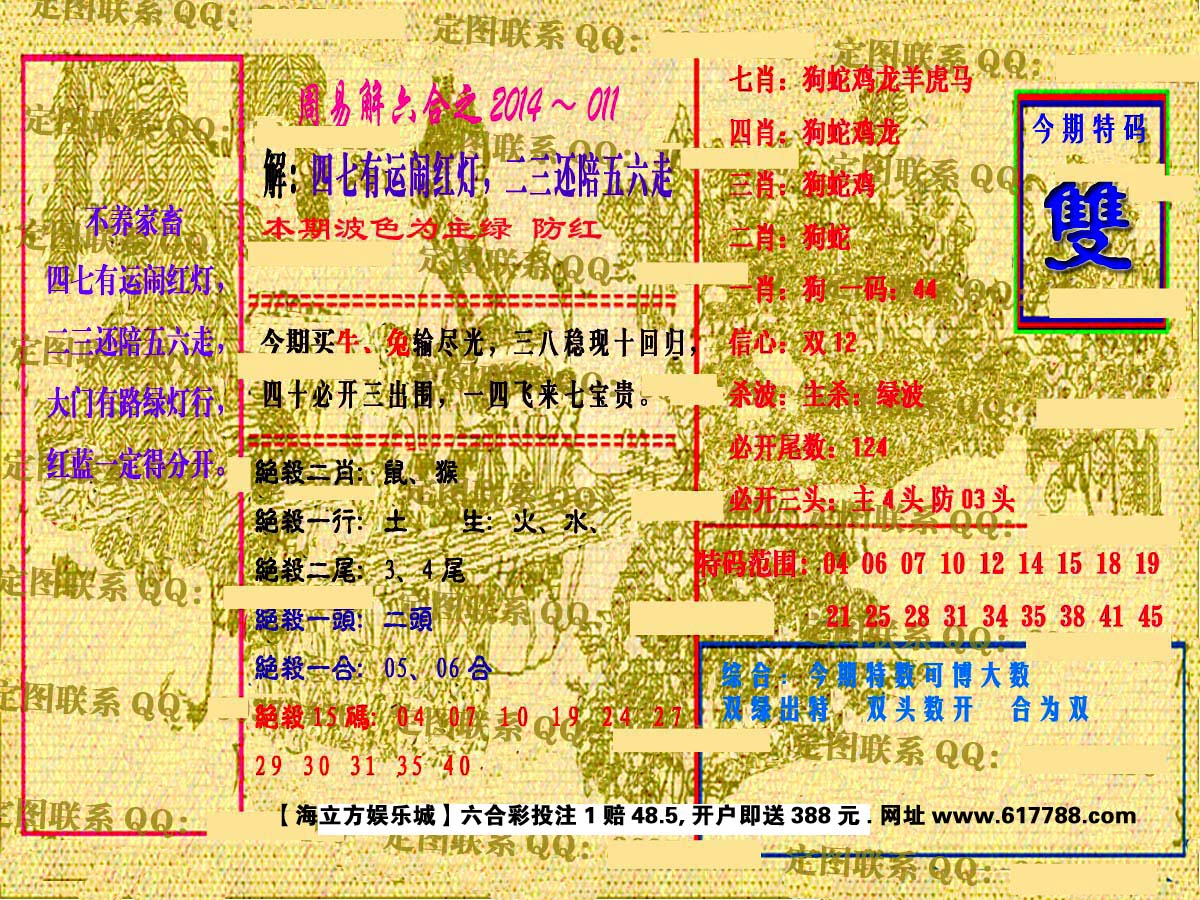 不养家畜
四七有运闹红灯，
二三还陪五六走，
大门有路绿灯行，
红蓝一定得分开。
周易解六合之2014～011
解：四七有运闹红灯，二三还陪五六走
本期波色为主绿 防红
今期买牛、兔输尽光，三八稳现十回归，
四十必开三出围，一四飞来七宝贵。
絕殺二肖：鼠、猴
絕殺一行：土 生：火、水、
絕殺二尾：3、4尾
絕殺一頭：二頭
絕殺一合：05、06合
絕殺15碼：04 07 10 19 24 27
29 30 31 35 40
七肖：狗蛇鸡龙羊虎马
四肖：狗蛇鸡龙
三肖：狗蛇鸡
二肖：狗蛇
一肖：狗 一码：44
信心：双12
杀波：主杀：绿波
必开尾数：124
必开三头：主4头防03头
今期特码
雙
特码范围：04 06 07 10 12 14 15 18 19
21 25 28 31 34 35 38 41 45
综合：今期特数可博大数
双绿出特 双头数开 合为双
【海立方娱乐城】六合彩投注1赔48.5,开户即送388元.网址www.617788.com
定图联系QQ：